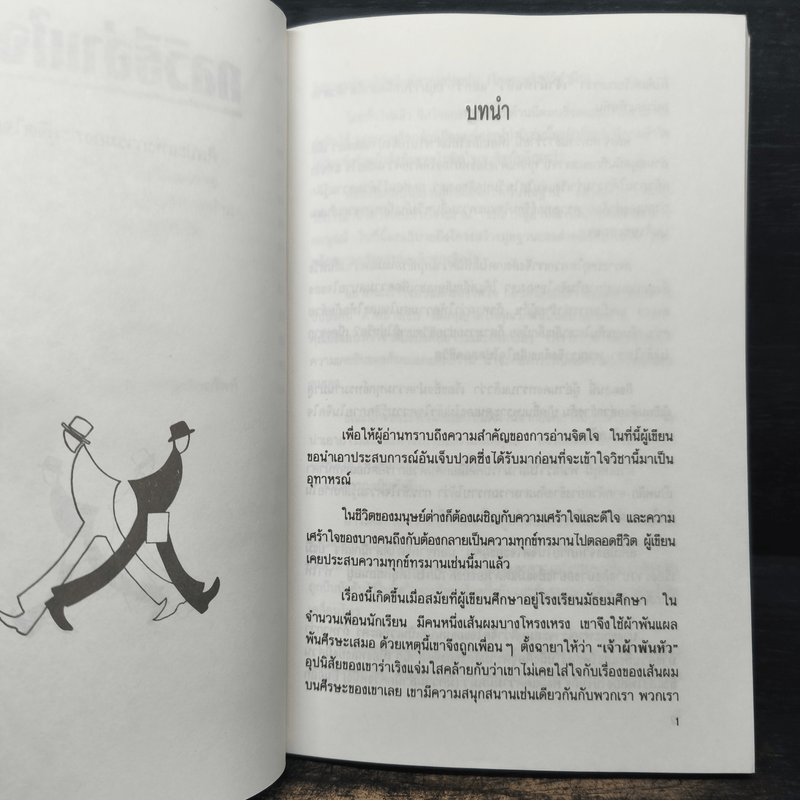 บทนำ
เพื่อให้ผู้อ่านทราบถึงความสำคัญของการอ่านจิตใจ ในที่นี้ผู้เขียน
ขอนำเอาประสบการณ์อันเจ็บปวดซึ่งได้รับมาก่อนที่จะเข้าใจวิชานี้มาเป็น
อุทาหรณ์
ในชีวิตของมนุษย์ต่างก็ต้องเผชิญกับความเศร้าใจและดีใจ และความ
เศร้าใจของบางคนถึงกับต้องกลายเป็นความทุกข์ทรมานไปตลอดชีวิต ผู้เขียน
เคยประสบความทุกข์ทรมานเช่นนี้มาแล้ว
เรื่องนี้เกิดขึ้นเมื่อสมัยที่ผู้เขียนศึกษาอยู่โรงเรียนมัธยมศึกษา ใน
จำนวนเพื่อนนักเรียน มีคนหนึ่งเส้นผมบางโหรงเหรง เขาจึงใช้ผ้าพันแผล
พันศีรษะเสมอ ด้วยเหตุนี้เขาจึงถูกเพื่อน ๆ ตั้งฉายาให้ว่า “เจ้าผ้าพันหัว”
อุปนิสัยของเขาร่าเริงแจ่มใสคล้ายกับว่าเขาไม่เคยใส่ใจกับเรื่องของเส้นผม
บนศีรษะของเขาเลย เขามีความสนุกสนานเช่นเดียวกันกับพวกเรา พวกเรา
1